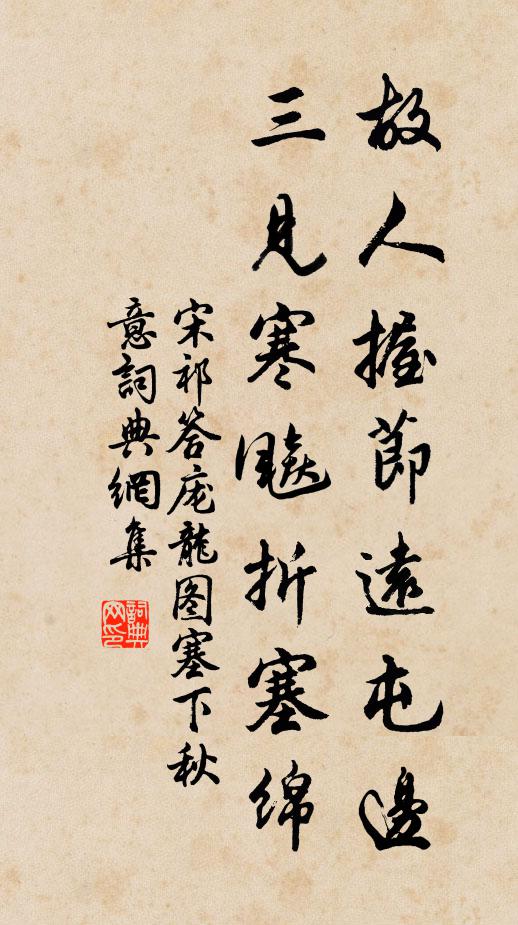 故人握節遠屯邊
三見寒飈折塞綿
宋祁答庞龍图塞下秋
意詞典網集
詞典网印